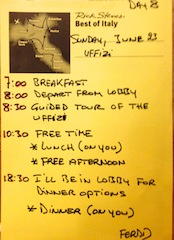 DAY 8
Rick Steves'
Best of Italy
SUNDAY, JUNE 23
UFFIZI
7:00 BREAKFAST
8:00 DEPART FROM LOBBY
8:30 GUIDED TOUR OF THE
UFFIZI
10:30 FREE TIME
* LUNCH (ON YOU)
* FREE AFTERNOON
18:30 I'LL BE IN LOBBY FOR
DINNER OPTIONS
* DINNER (ON YOU)